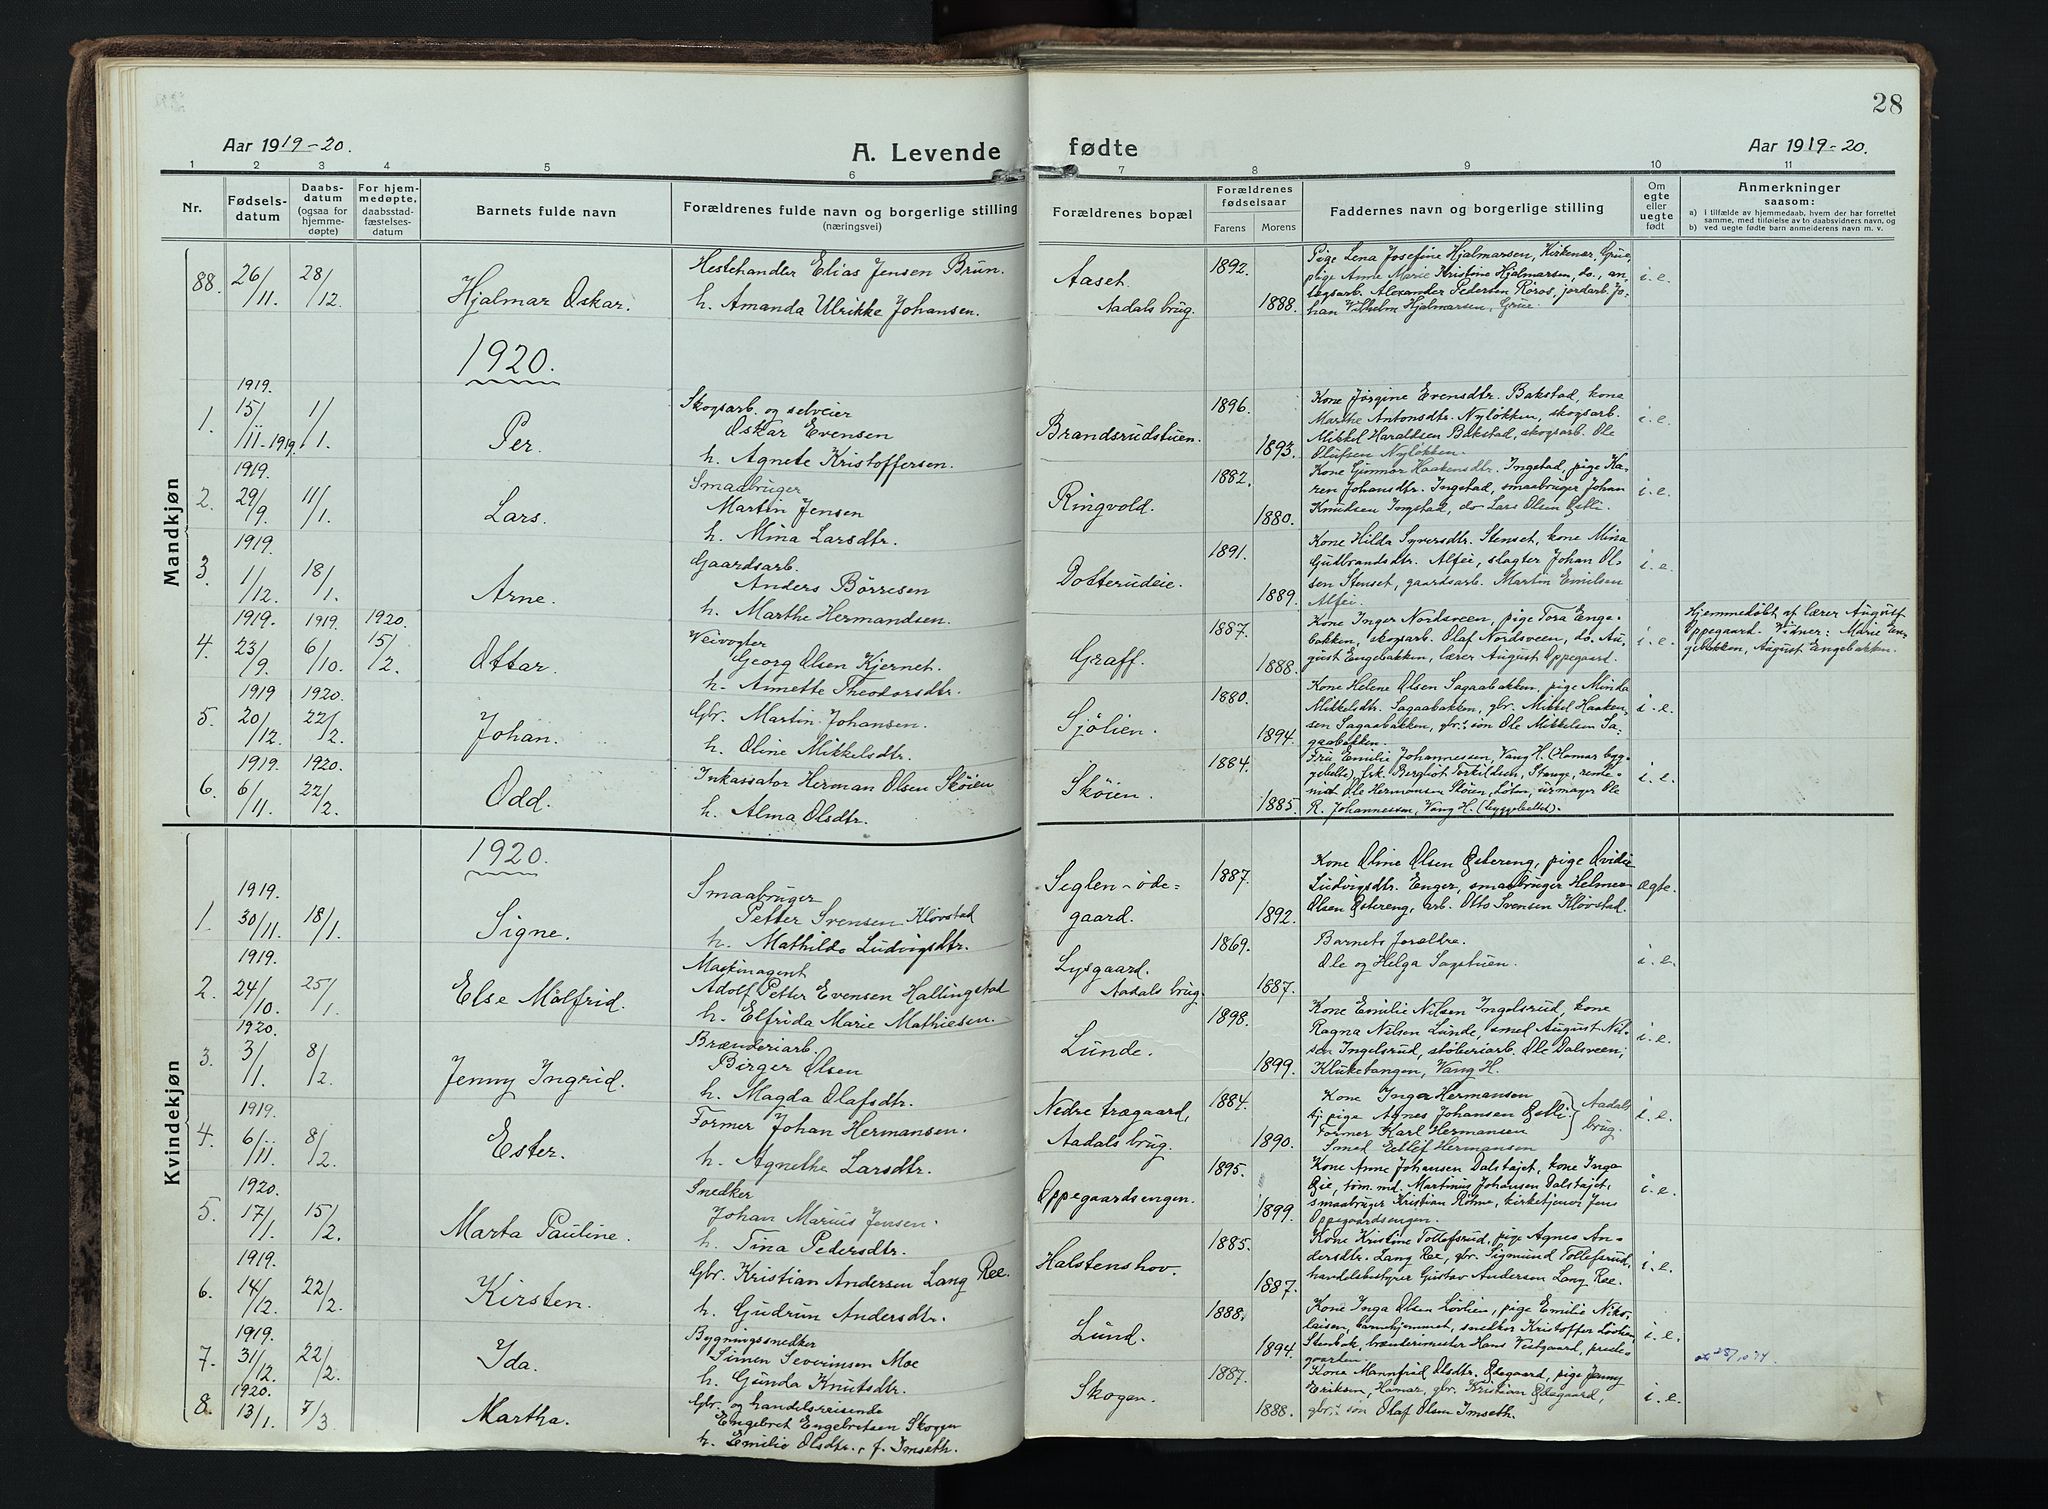 28
Aar 1919-20.
A. Levende fødte
Aar 1919-20.
1 2 3 4 5 6 7 8 9 10 11
Nr.
Fødsels-
datum
Daabs-
datum
(ogsaa for
hjemme-
døpte)
For hjem-
medøpte,
daabsstad-
fæstelses-
datum
Barnets fulde navn
Forældrenes fulde navn og borgerlige stilling
(næringsvei)
Forældrenes bopæl
Forældrenes
fødselsaar
Farens Morens
Faddernes navn og borgerlige stilling
Om
egte
eller
uegte
født
Anmerkninger
saasom:
a) I tilfælde av hjemmedaab, hvem der har forrettet
samme, med tilføielse av to daabsvidners navn, og
b) ved uegte fødte barn anmelderens navn m. v.
Mandkjøn
88. 26/11. 28/12. Hjalmar Oskar.
Hestehandler Elias Jensen Brun.
h. Amanda Ulrikke Johansen.
Aaset.
Aadals brug.
1892.
1888.
Pige Lena Josefine Hjalmarsen, Kirkener, Grue,
pige Anne Marie Kristine Hjalmarsen, do., an-
legsarb. Alexander Pedersen Röros, jordarb. Jo-
han Vilhelm Hjalmarsen, Grue
i. e.
1920.
1919.
1. 15/11-1919. 1/1. Per.
Skogsarb. og selveier
Oskar Evensen
h. Agnete Kristoffersen.
Brandsrudstuen.
1896.
1893.
Kone Jørgine Evensdtr. Bakstad, kone
Marthe Antonsdtr. Nyløkken, skogsarb.
Mikkel Haraldsen Bakstad, skogsarb. Ole
Olufsen Nyløkken.
i. e.
1919.
2. 29/9. 11/1. Lars.
Smaabruger
Martin Jensen
h. Mina Larsdtr.
Ringvold.
1882.
1880.
Kone Gunnar Haakensdtr. Ingstad, pige Ka-
ren Johansdtr. Ingstad, smaabruger Johan
Knudsen Ingstad, do Lars Olsen Østli.
i. e.
1919.
3. 1/12. 18/1. Arne.
Gaardsarb.
Anders Börresen
h. Marthe Hermandsen.
Dotterudeie.
1891.
1889.
Kone Hilda Syversdtr. Stenset, kone Mina
Gudbrandsdtr. Alfei, slagter Johan Ol-
sen Stenset, gaardsarb. Martin Emilsen
Alfei.
i. e.
1919. 1919. 1920.
4. 23/9. 6/10. 15/2. Ottar.
Veivogter
Georg Olsen Kjernet.
h. Annette Theodorsdtr.
Graff.
1887.
1888.
Kone Inger Nordsveen, pige Tora Enge-
bakken, skogsarb. Olaf Nordsveen, do. Au-
gust Engebakken, lærer August Oppegaard.
i. e.
Hjemmedøbt at lærer August
Oppegaard. Vidner: Marie En-
gebakken, August Engebakken.
1919 1920.
5. 20/12. 22/2. Johan.
Gbr. Martin Johansen.
h. Oline Mikkelsdtr.
Sjölien.
1880.
1894.
Kone Helene Olsen Sagaabakken, pige Minda
Mikkelsdtr. Sagaabakken, gbr. Mikkel Haaken-
sen Sagaabakken, gbr.s søn Ole Mikkelsen Sa-
gaabakken.
i. e.
1919. 1920.
6. 6/11. 22/2. Odd.
Inkassator Herman Olsen Sköien
h. Alma Olsdtr.
Sköien.
1884.
1885.
Fru Emilie Johannessen, Vang H. (Hamar byg-
gebelte), frk. Bergliot Torkildsen, Stange, rente-
nist Ole Hermansen Sköien, Löten, urmager Ole
R. Johannessen, Vang H. (byggebeltet).
i. e.
Kvindekjøn
1920.
1919.
1. 30/11. 18/1. Signe.
Smaabruger
Petter Svensen Klövstad
h. Mathilde Ludvigsdtr.
Seglen-öde-
gaard.
1887.
1892.
Kone Oline Olsen Østereng, pige Ovidie
Ludvigsdtr. Enger, smaabruger Helmer
Olsen Østereng, arb. Otto Svensen Klövstad.
ægte.
1919.
2. 24/10. 25/1. Else Målfrid.
Maskinagent
Adolf Petter Evensen Hallingstad
h. Elfrida Marie Mathiesen.
Lysgaard.
Aadals brug.
1869.
1887.
Barnets forældre.
Ole og Helga Sagstuen.
i. e.
1920.
3. 3/1. 8/2. Jenny Ingrid.
Brænderiarb.
Birger Olsen
h. Magda Olafsdtr.
Lunde.
1898.
1899.
Kone Emilie Nilsen Ingelsrud, kone
Ragna Nilsen Lunde, smed August Nil-
sen Ingelsrud, støberiarb. Ole Dalsveen,
Kluketangen, Vang H.
i. e.
1919.
4. 6/11. 8/2. Ester.
Former Johan Hermansen.
h. Agnethe Larsdtr.
Nedre trægaard,
Aadals brug.
1884.
1890.
Kone Inga Hermansen
tj. pige Agnes Johansen Østli
Former Karl Hermansen
Smed Hermansen
Aadals
brug.
i. e.
1920.
5. 17/1. 15/2. Marta Pauline.
Snedker
Johan Marius Jensen.
h. Tina Pedersdtr.
Oppegaardsengen.
1895.
1899.
Kone Anne Johansen Dalstøjet, kone Inga
Øie, töm.md. Martinus Johansen Dalstøjet,
smaabruger Kristian Röhne, kirketjener Jens
Oppegaardsengen.
i. e.
1919.
6. 14/12. 22/2. Kirsten.
Gbr. Kristian Andersen Lang Ree.
h. Gudrun Andersdtr.
Halstenshov.
1885.
1887.
Kone Kristine Tollefsrud, pige Agnes An-
dersdtr. Lang Ree, gbr. Sigmund Tollefsrud,
handelsbestyrer Gustav Andersen Lang Ree.
i. e.
1919.
7. 31/12. 22/2. Ida.
Bygningssnedker
Simen Severinsen Moe
h. Gunda Knutsdtr.
Lund.
1888.
1894.
Kone Inga Olsen Lövlien, pige Emilie Niko-
laisen, barnehjemmet, snedker Kristoffer Lövlien
Stenbæk, brænderimester Hans Vestgaard, preste-
gaarden
i. e.
1920.
8. 13/1. 7/3. Martha.
Gbr. og handelsreisende
Engebret Engebretsen Skogen
h. Emilie Olsdtr., f. Imseth.
Skogen.
1887.
1888.
Kone Mannfrid Olsdtr. Ødegaard, pige Jenny
Eriksen, Hamar, gbr. Kristian Ødegaard,
gbr.s søn Olaf Olsen Imseth.
i. e.